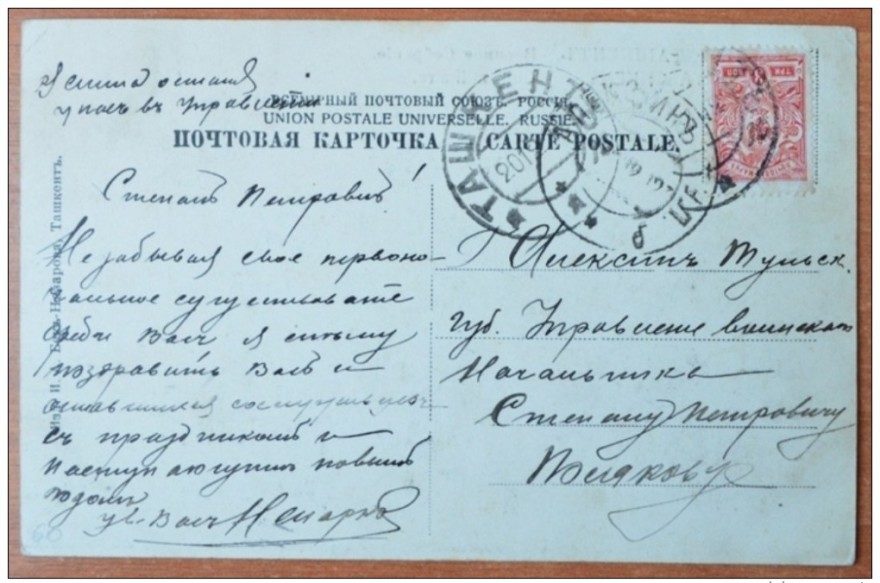 остался
у насъ въ Управленiи
ВСЕМIРНЫЙ ПОЧТОВЫЙ СОЮЗЪ. РОССIЯ.
UNION POSTALE UNIVERSELLE. RUSSIE.
ПОЧТОВАЯ КАРТОЧКА CARTE POSTALE.
ТАШКЕНТ
Степанъ Петровичъ!
Не забывая свое первона-
чальное существованiе
среди Васъ я спѣшу
поздравить Васъ и
оставшихся сослуживцевъ
съ праздникомъ и
наступающимъ новымъ
годомъ
ув. Васъ
Г. Алексинъ Тульск.
губ. Управленiе воинскаго
Начальника
Степану Петровичу
Ташкентъ.